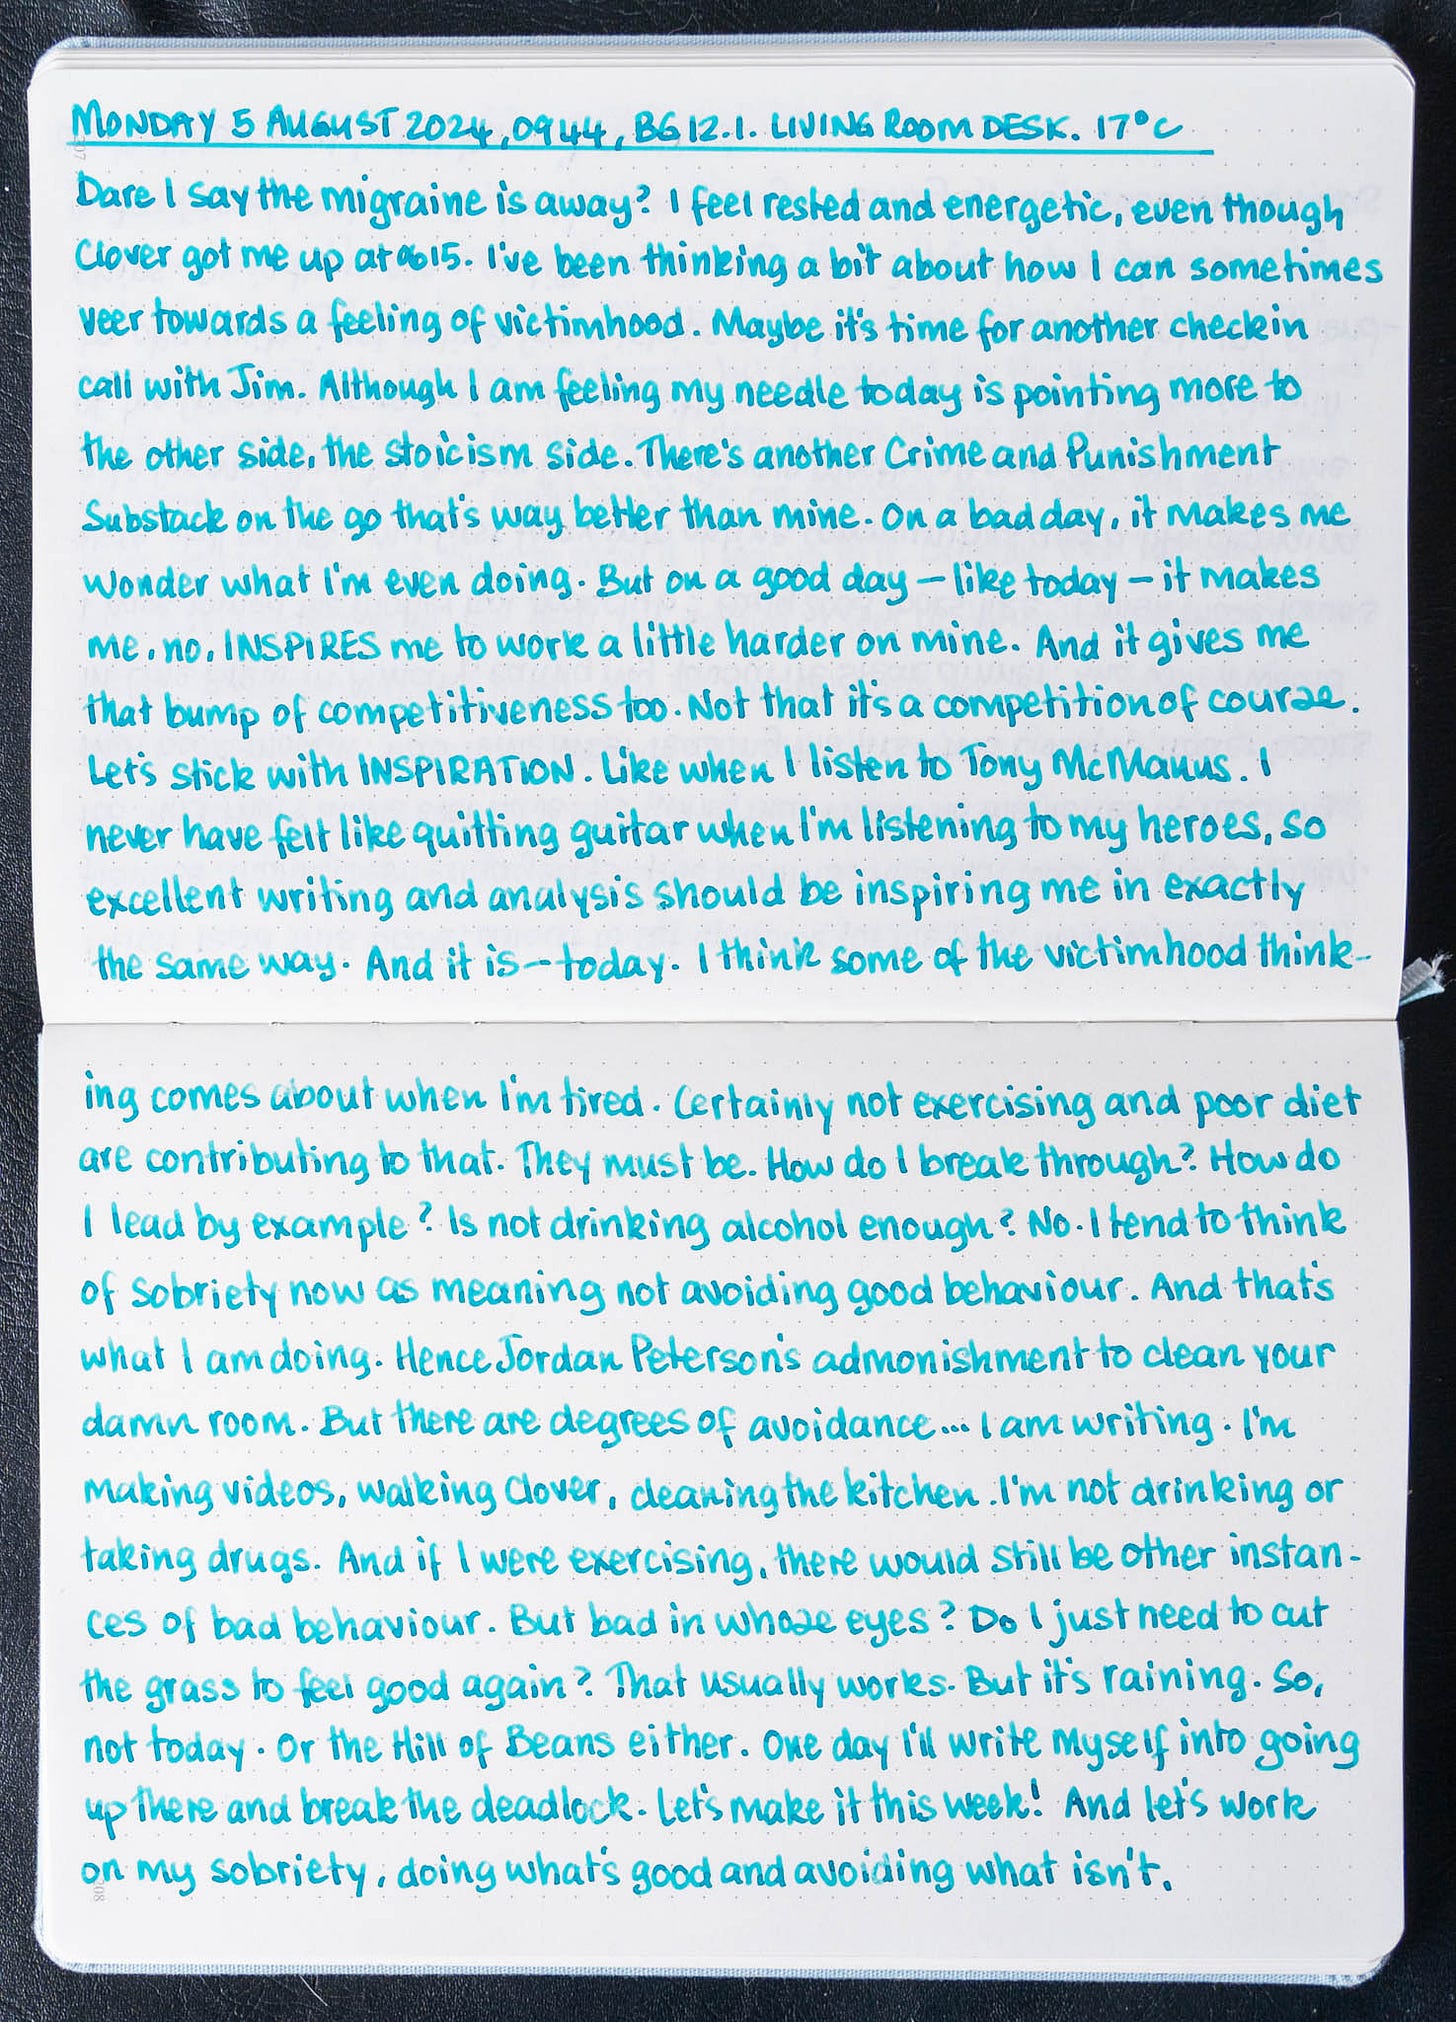 MONDAY 5 AUGUST 2024, 0944, BG 12.1. LIVING ROOM DESK. 17°C
Dare I say the migraine is away? I feel rested and energetic, even though
Clover got me up at 0615. I've been thinking a bit about how I can sometimes
veer towards a feeling of victimhood. Maybe it's time for another checkin
call with Jim. Although I am feeling my needle today is pointing more to
the other side, the stoicism side. There's another Crime and Punishment
Substack on the go that's way better than mine. On a bad day, it makes me
wonder what I'm even doing. But on a good day – like today – it makes
me, no, INSPIRES me to work a little harder on mine. And it gives me
that bump of competitiveness too. Not that it's a competition of course.
Let's stick with INSPIRATION. Like when I listen to Tony McManus. I
never have felt like quitting guitar when I'm listening to my heroes, so
excellent writing and analysis should be inspiring me in exactly
the same way. And it is – today. I think some of the victimhood think-
ing comes about when I'm tired. Certainly not exercising and poor diet
are contributing to that. They must be. How do I break through? How do
I lead by example? Is not drinking alcohol enough? No. I tend to think
of sobriety now as meaning not avoiding good behaviour. And that's
what I am doing. Hence Jordan Peterson's admonishment to clean your
damn room. But there are degrees of avoidance... I am writing. I'm
making videos, walking Clover, cleaning the kitchen. I'm not drinking or
taking drugs. And if I were exercising, there would still be other instan-
ces of bad behaviour. But bad in whose eyes? Do I just need to cut
the grass to feel good again? That usually works. But it's raining. So,
not today. Or the Hill of Beans either. One day I'll write myself into going
up there and break the deadlock. Let's make it this week! And let's work
on my sobriety, doing what's good and avoiding what isn't.
208